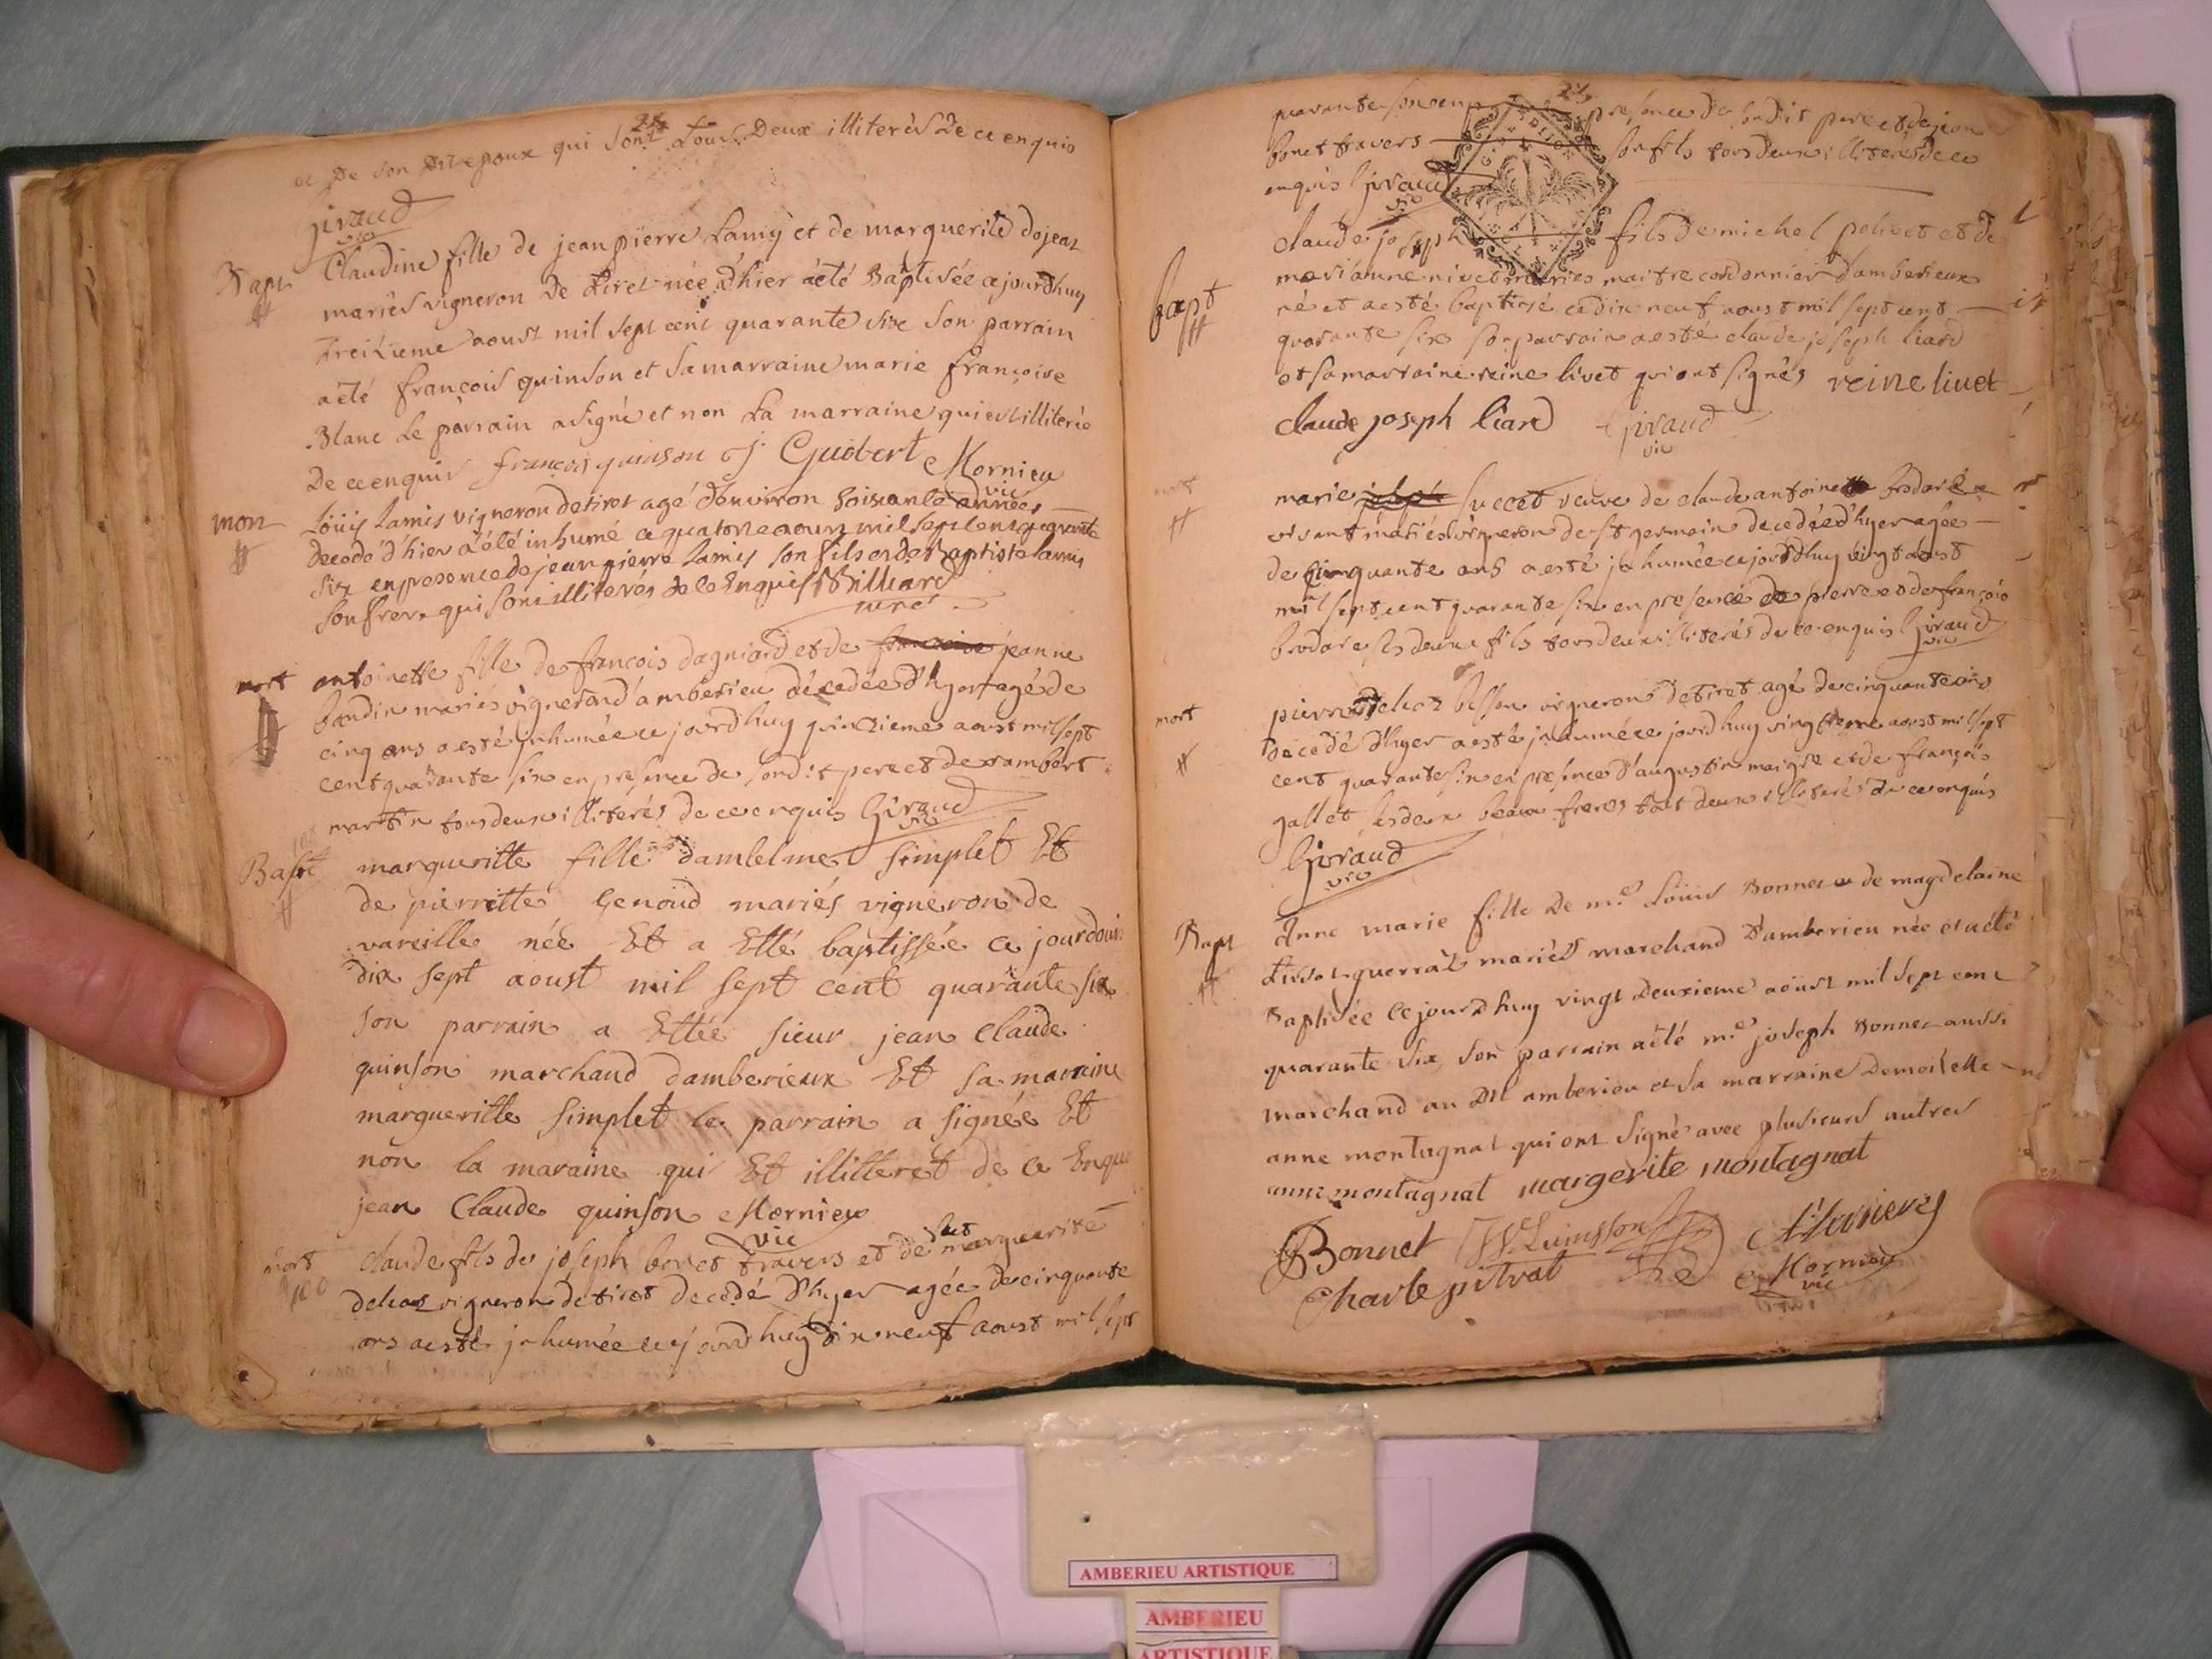 et de son dit epoux qui sont tous deux illiterés de ce enquis
Giraud
vic
Bapt
Claudine fille de jean pierre Lamy et de marguerite dojat
mariés vigneron de tiret née d'hier a été Baptisée ajourdhuy
treizieme aoust mil sept cent quarante six son parrain
a été françois quinson et sa marraine marie françoise
Blanc le parrain a signé et non la marraine qui est illiterée
de ce enquis françois quinson J Guobert Mornieu
vic
mort
Loüis Lamis vigneron de tiret agé d'environ soixante années
decedé d'hier a été inhumé ce quatorze aoust mil sept cent quarante
six en presence de jean pierre lamis son fils et de Baptiste lamis
son frere qui sont illiterés de ce Enquis Billiard
curé
mort
antoinette fille de françois dagniard et de jeanne
bondin mariés vigneron d'amberieu décedée d'hyer agé de
cinq ans a esté inhumée ce jourdhuy quinzieme aoust mil sept
cent quarante six en presence de son dit pere et de rambert
martin tous deux illiterés de ce enquis Giraud
vic
Bapt
margueritte fille dambelme simplet Et
de pierritte Genoud mariés vigneron de
vareille née Et a Etté baptissée ce jourdouis
dix sept aoust mil sept cent quarante six
son parrain a Ettée sieur jean claude
quinson marchand damberieux Et sa maraine
margueritte simplet le parrain a signée Et
non la maraine qui Et illitteret de ce Enqui
jean Claude quinson Mornieu
vic
mort
claude fils de joseph bonet travers et de marguerite
dehoz vigneron de tiret decedé d'hyer agée de cinquante
ans a esté inhumée ce jourdhuy dix neuf aoust mil sept
quarante six en presence de son dit pere et de jean
bonet travers son fils tous deux illiterés de ce
enquis Giraud
vic
bapt
claude joseph fils de michel polivet et de
marianne nivet mariés maitre cordonnier d'amberieux
né et a esté baptisé ce dix neuf aoust mil sept cent
quarante six son parrain a esté claude joseph liard
et sa marraine reine livet qui ont signés reine livet
claude joseph liard Giraud
vic
mort
marie succet veuve de claude antoine brodare
vivant mariés vigneron de st germain decedée d'hyer agée
de cinquante ans a esté inhumée ce jourdhuy vingt aoust
mil sept cent quarante six en presence de pierre et de françois
brodare ses deux fils tous deux illiterés de ce enquis Giraud
vic
mort
pierre dehoz besson vigneron de tiret agé de cinquante ans
decedé d'hyer a esté inhumé ce jourdhuy vingt aoust mil sept
cent quarante six en presence d'augustin maigre et de françois
gallet ses deux beaux freres tout deux illiterés de ce enquis
Giraud
vic
Bapt
Anne marie fille de me Loüis Bonnet et de magdelaine
tissot guerraz mariés marchand d'amberieu née et a été
Baptisée ce jourdhuy vingt deuxieme aoust mil sept cent
quarante six, son parrain a été me joseph Bonnet aussi
marchand au dit amberieu et sa marraine demoiselle
anne montagnat qui ont signé avec plusieurs autres
anne montagnat margerite montagnat
Bonnet
Charle pitrat Mornieu
vic
AMBERIEU ARTISTIQUE
AMBERIEU
ARTISTIQUE